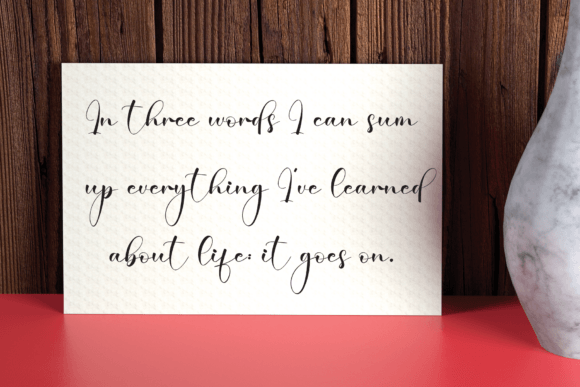 In three words I can sum
up everything I've learned
about life: it goes on.